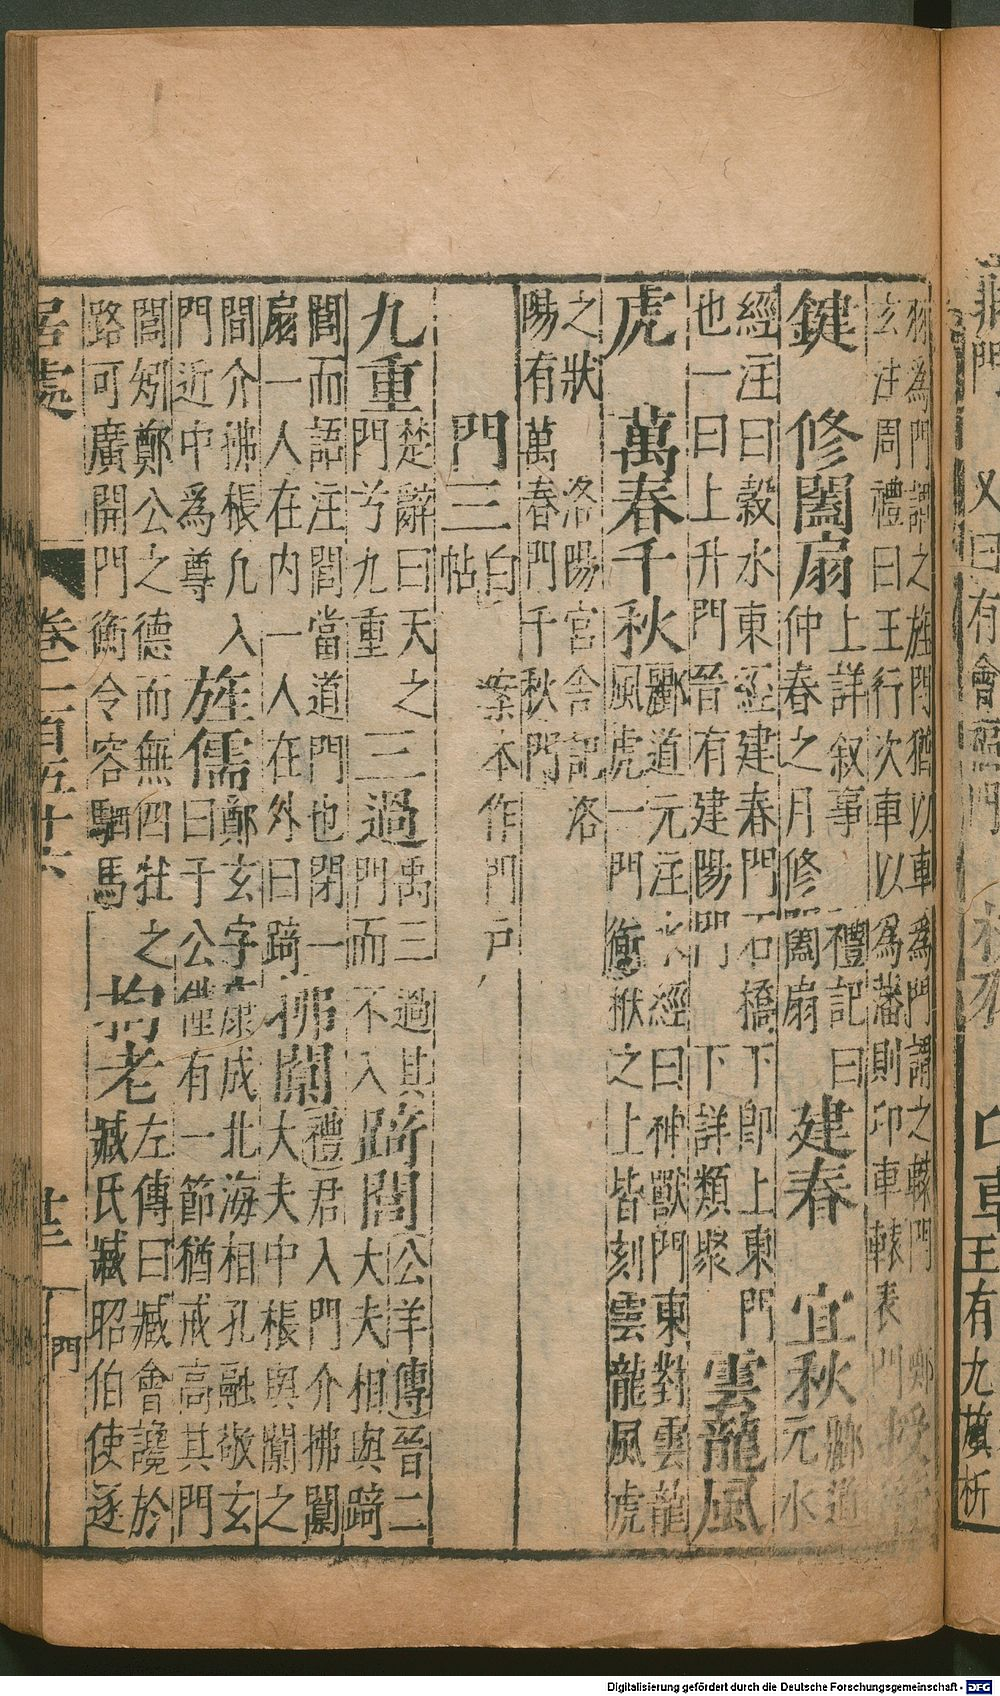 羽為門謂之旌門猶以車為門謂之轅門 鄭
玄注周禮曰王行次車以為藩則卬車轅表門 授
鍵 修闔扇 上詳叙事 禮記曰
仲春之月修闔扇 建春 宜秋 酈道
元水
經注曰穀水東逕建春門石橋下即上東門
也一曰上升門晉有建陽門 下詳類聚 雲龍風
虎 萬春千秋 酈道元注水經曰神獸門東對雲龍
風虎一門衡栿之上皆刻雲龍風虎
之狀 洛陽宮舍記洛
陽有萬春門千秋門
門三 白帖 案本作門戶
九重 楚辭曰天之
門兮九重 三過 禹三過其
門而不入 踦閭 公羊傳晉二
大夫相與踦
閭而語注閭當道門也閉一
扇一人在内一人在外曰踦 拂闑 禮君入門介拂闑
大夫中棖與闑之
間介拂棖凡入
門近中為尊 旌儒 鄭玄字康成北海相孔融敬玄
曰于公僅有一節猶戒高其門
閭矧鄭公之德而無四牡之
路可廣開門衢令容駟馬 拘老 左傳曰臧會讒於
臧氏臧昭伯使逐
居處 卷一百五十六 廿三 門
又曰有會
王有九旗析
Digitalisierung gefördert durch die Deutsche Forschungsgemeinschaft - DFG